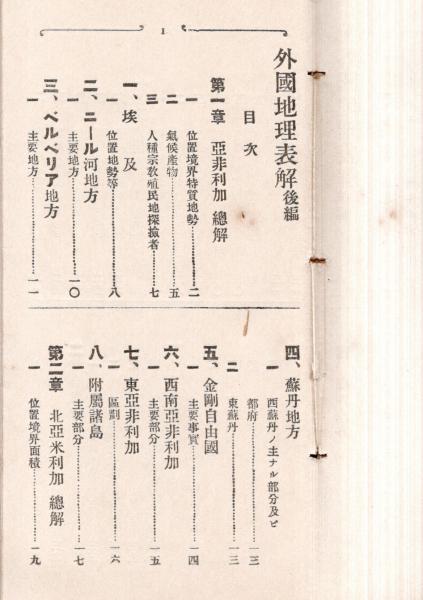 1
外國地理表解後編
目次
第一章 亞非利加 總解
一 位置境界特質地勢……二
二 氣候產物……五
三 人種宗敎殖民地探撿者……七
一、埃及
一 位置地勢等……八
二、ニール河地方
一 主要地方……一〇
三、ベルベリア地方
一 主要地方……一一
四、蘇丹地方
一 西蘇丹ノ主ナル部分及ビ
都府……一三
二 東蘇丹……一三
五、金剛自由國
一 主要事實……一四
六、西南亞非利加
一 主要部分……一五
七、東亞非利加
一 區劃……一六
八、附屬諸島
一 主要部分……一七
第二章 北亞米利加 總解
一 位置境界面積……一九